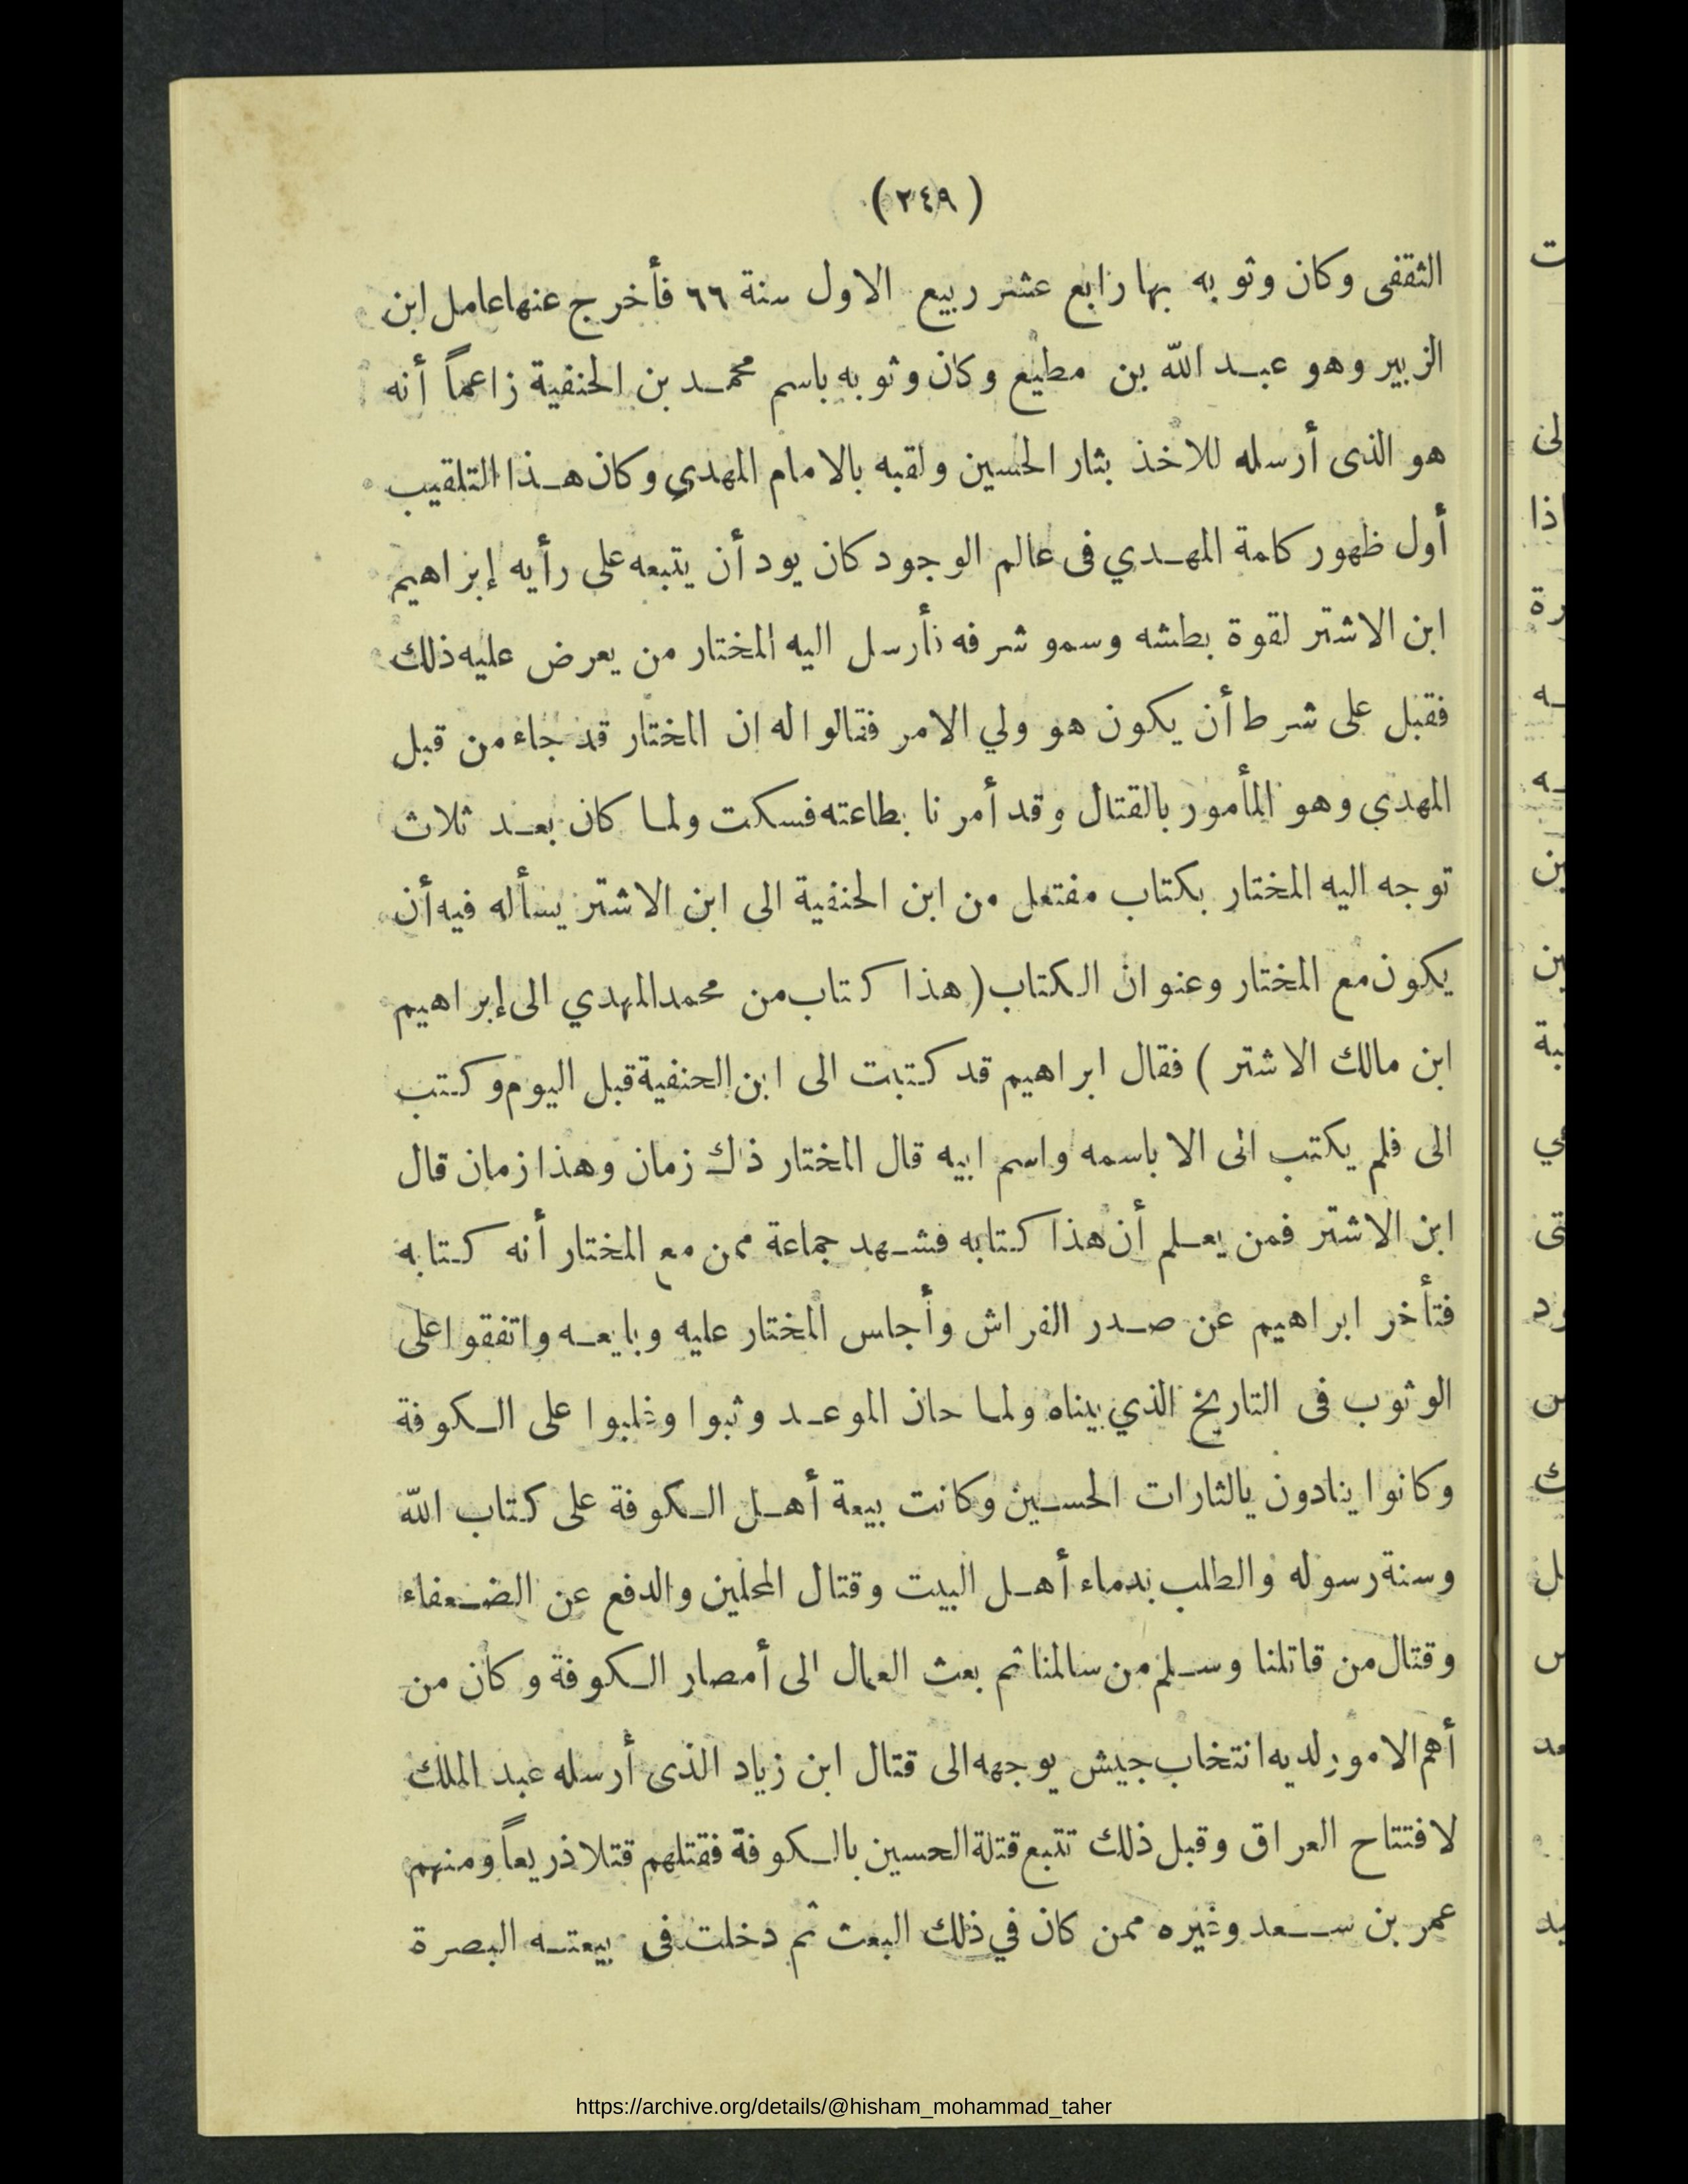 (٢٤٩)
الثقفى وكان وثوبه بها رابع عشر ربيع الاول سنة ٦٦ فأخرج عنها عامل ابن
الزبير وهو عبد الله بن مطيع وكان وثوبه باسم محمد بن الحنفية زاعماً أنه
هو الذى أرسله للاخذ بثار الحسين ولقبه بالامام المهدي وكان هذا التلقيب
أول ظهور كلمة المهدي فى عالم الوجود كان يود أن يتبعه على رأيه إبراهيم
ابن الاشتر لقوة بطشه وسمو شرفه فأرسل اليه المختار من يعرض عليه ذلك
فقبل على شرط أن يكون هو ولي الامر فقالوا له ان المختار قد جاء من قبل
المهدي وهو المأمور بالقتال وقد أمرنا بطاعته فسكت ولما كان بعد ثلاث
توجه اليه المختار بكتاب مفتعل من ابن الحنفية الى ابن الاشتر يسأله فيه أن
يكون مع المختار وعنوان الكتاب (هذا كتاب من محمد المهدي الى إبراهيم
ابن مالك الاشتر) فقال ابراهيم قد كتبت الى ابن الحنفية قبل اليوم وكتب
الى فلم يكتب الى الا باسمه واسم ابيه قال المختار ذلك زمان وهذا زمان قال
ابن الاشتر فمن يعلم أن هذا كتابه فشهد جماعة ممن مع المختار أنه كتابه
فتأخر ابراهيم عن صدر الفراش وأجلس المختار عليه وبايعه واتفقوا على
الوثوب فى التاريخ الذي بيناه ولما حان الموعد وثبوا وغلبوا على الكوفة
وكانوا ينادون يالثارات الحسين وكانت بيعة أهل الكوفة على كتاب الله
وسنة رسوله والطلب بدماء أهل البيت وقتال المحلين والدفع عن الضعفاء
وقتال من قاتلنا وسلم من سالمنا ثم بعث العمال الى أمصار الكوفة وكان من
أهم الامور لديه انتخاب جيش يوجهه الى قتال ابن زياد الذى أرسله عبد الملك
لافتتاح العراق وقبل ذلك تتبع قتلة الحسين بالكوفة فقتلهم قتلا ذريعاً ومنهم
عمر بن سعد وغيره ممن كان في ذلك البعث ثم دخلت فى بيعته البصرة
https://archive.org/details/@hisham_mohammad_taher